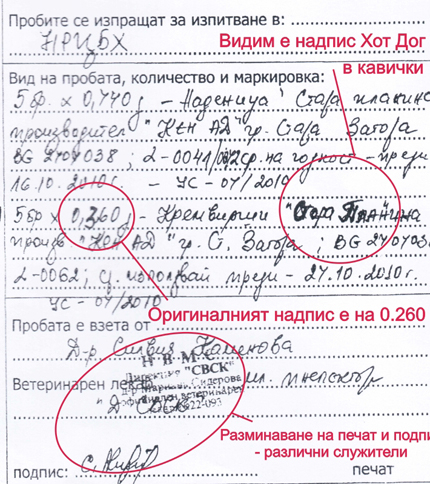 Пробите се изпращат за изпитване в:
НРЦБХ
Видим е надпис Хот Дог
в кавички
Вид на пробата, количество и маркировка:
5 бр. х 0,770 g - Наденица "Стара планина
производител "Кен АД" гр. Стара Загора
BG 2707038 ; L-0041/ ср. на годност - преди
16.10.2010г. - УС-07/2010
5 бр х 0,360 g - Кренвирши "Стара Планина
произв. "Кен АД" гр. Ст. Загора ; BG 270703
L-0062; използвай преди - 27.10.2010г.
УС-07/2010
Оригиналният надпис е на 0.260
Пробата е взета от
Д-р Силвия Каменова
Н В М С
Дирекция "СВСК"
Ветеринарен инспектор
д-р Сидерова
официален ветеринарен
Разминаване на печат и подпи
- различни служители
подпис:
печат